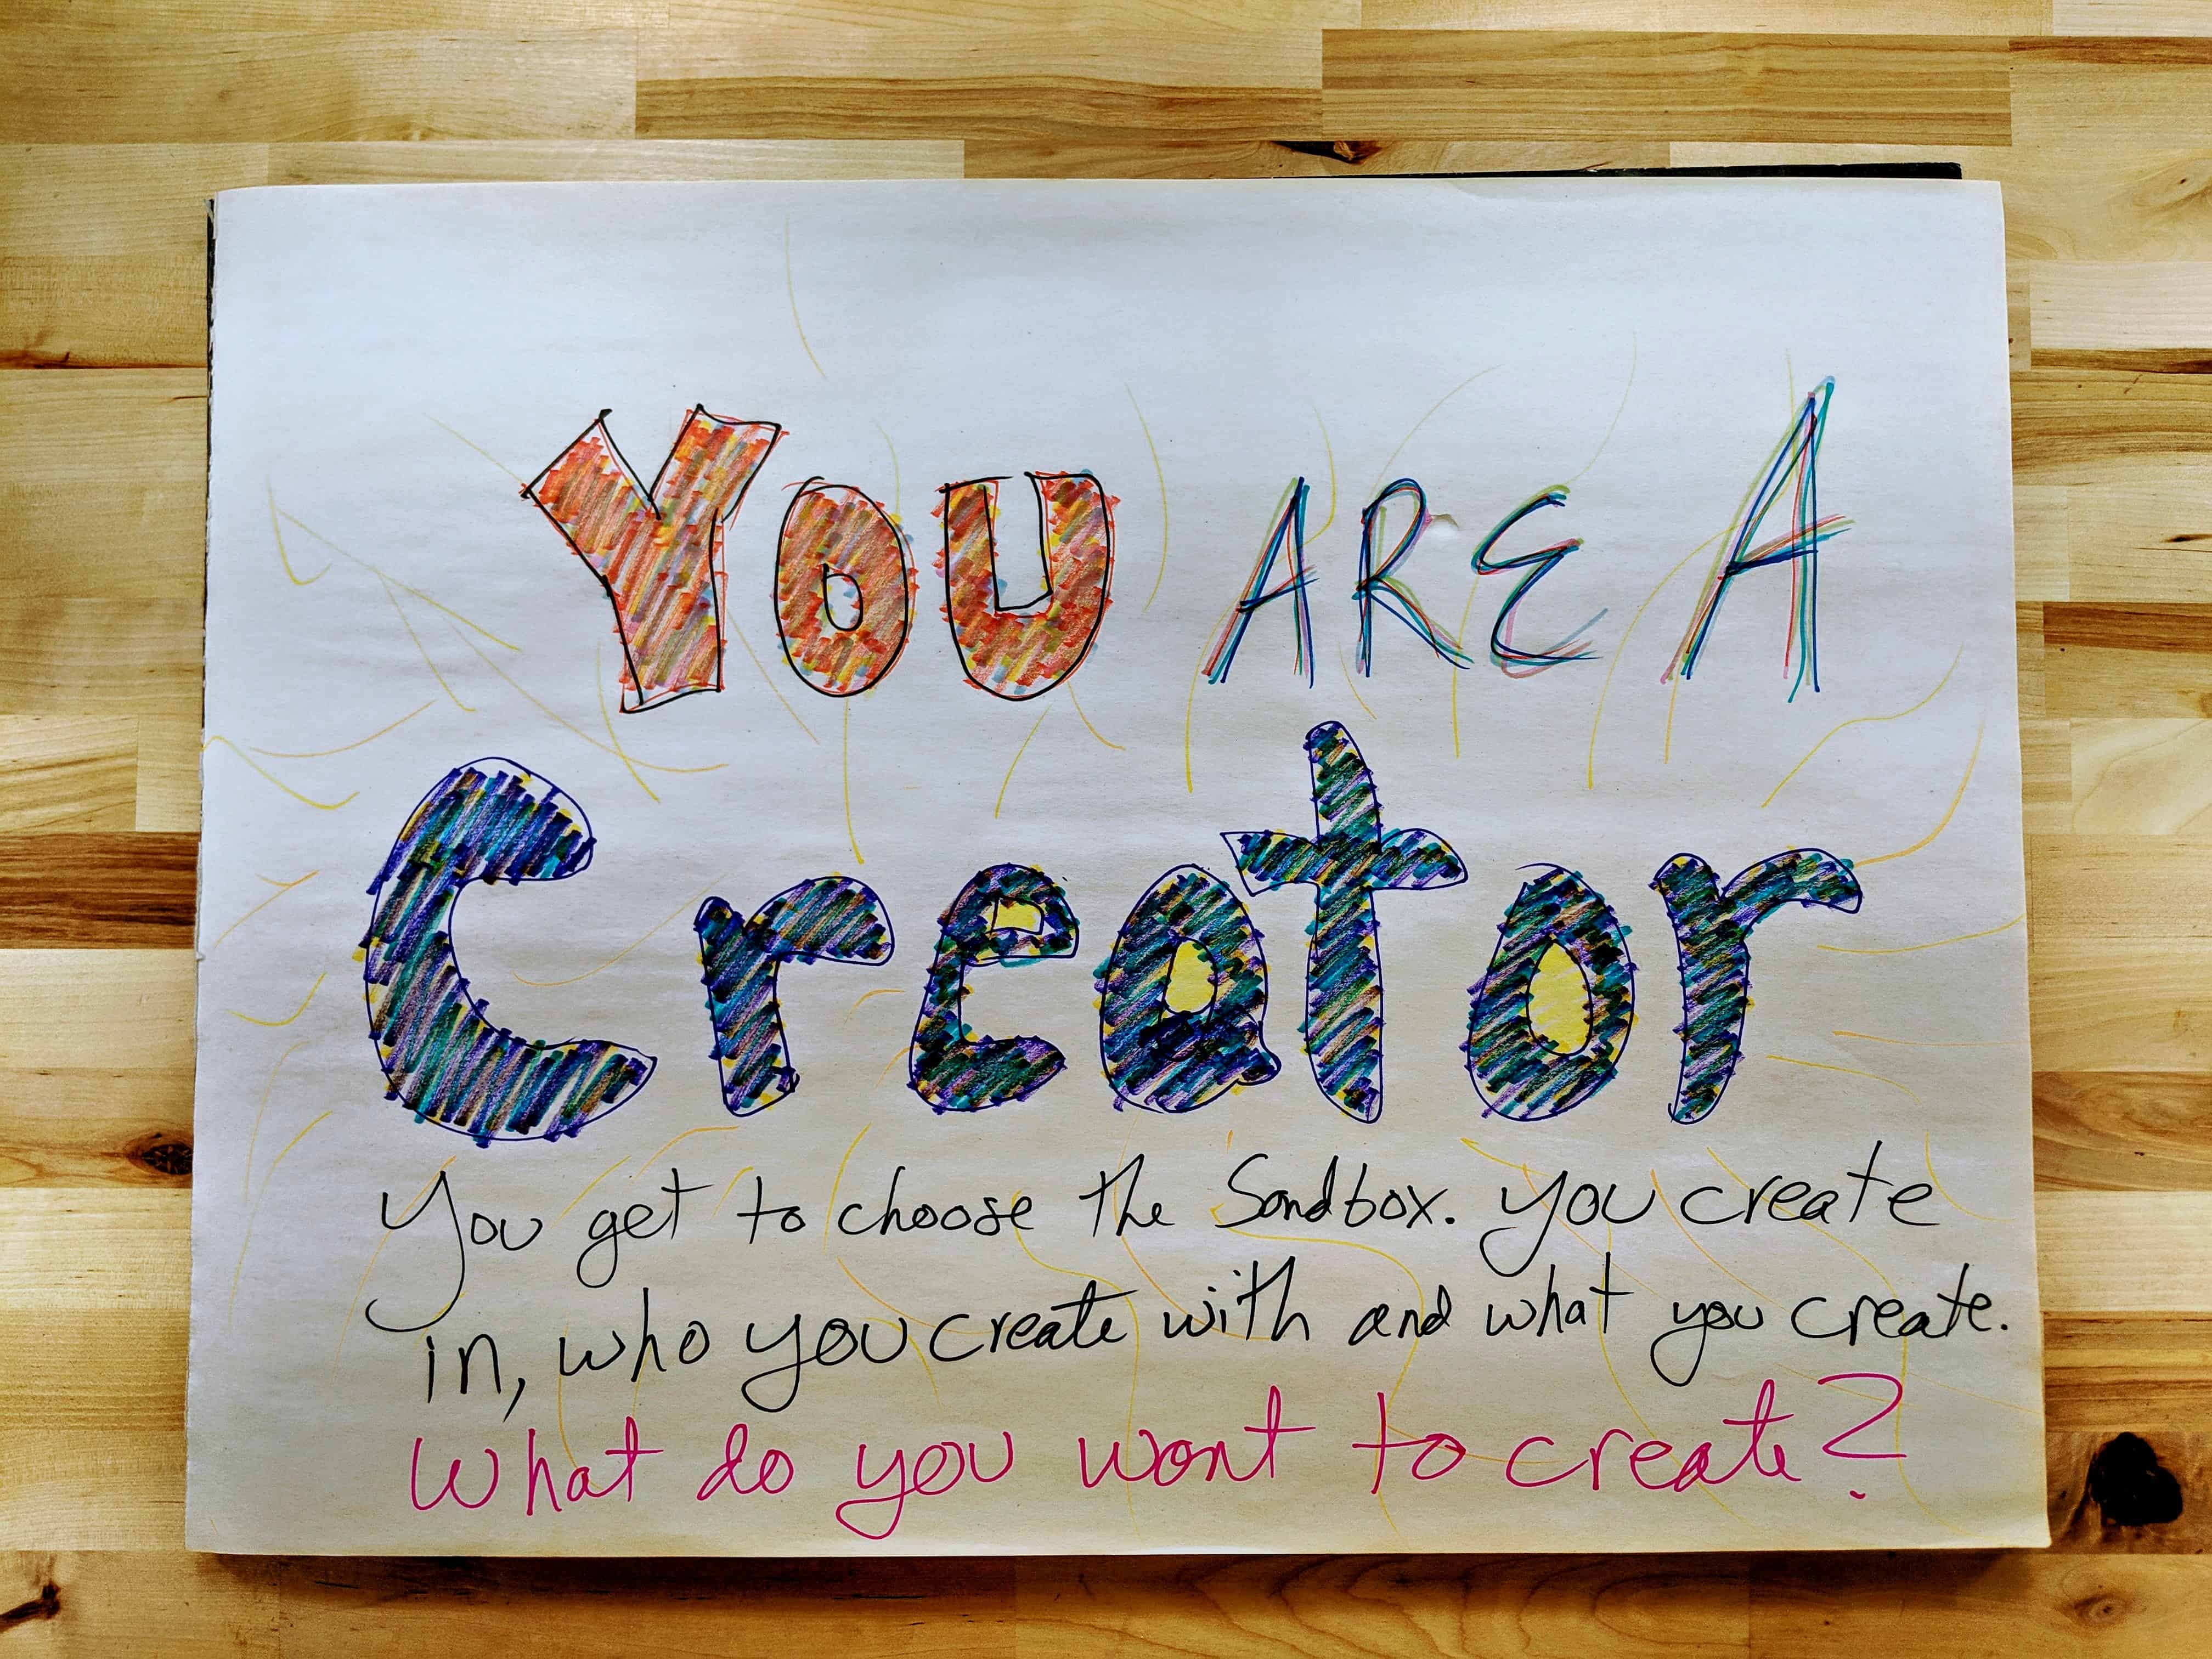 YOU ARE A
Creator
You get to choose the Sandbox. You create
in, who you create with and what you create.
What do you want to create?